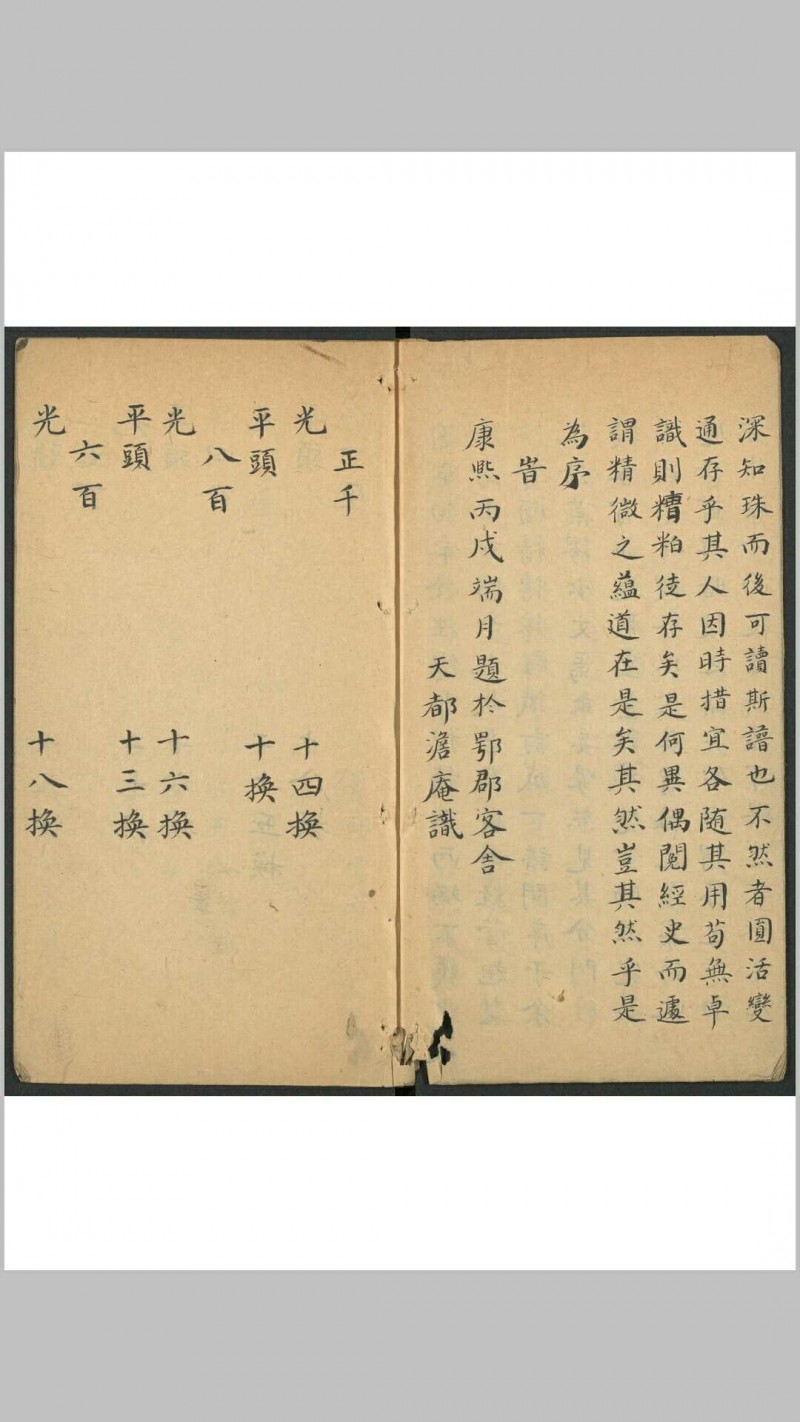 深知珠而後可讀斯譜也不然者圓活變
通存乎其人因時措宜各随其用苟無卓
識則糟粕徒存矣是何異偶閱經史而遽
謂精微之蘊道在是矣其然豈其然乎是
為序
旹
康熙丙戌端月題於鄂郡客舍
天都澹庵識
正千
光 十四換
平頭 十換
八百
光 十六換
平頭 十三換
六百
光 十八換